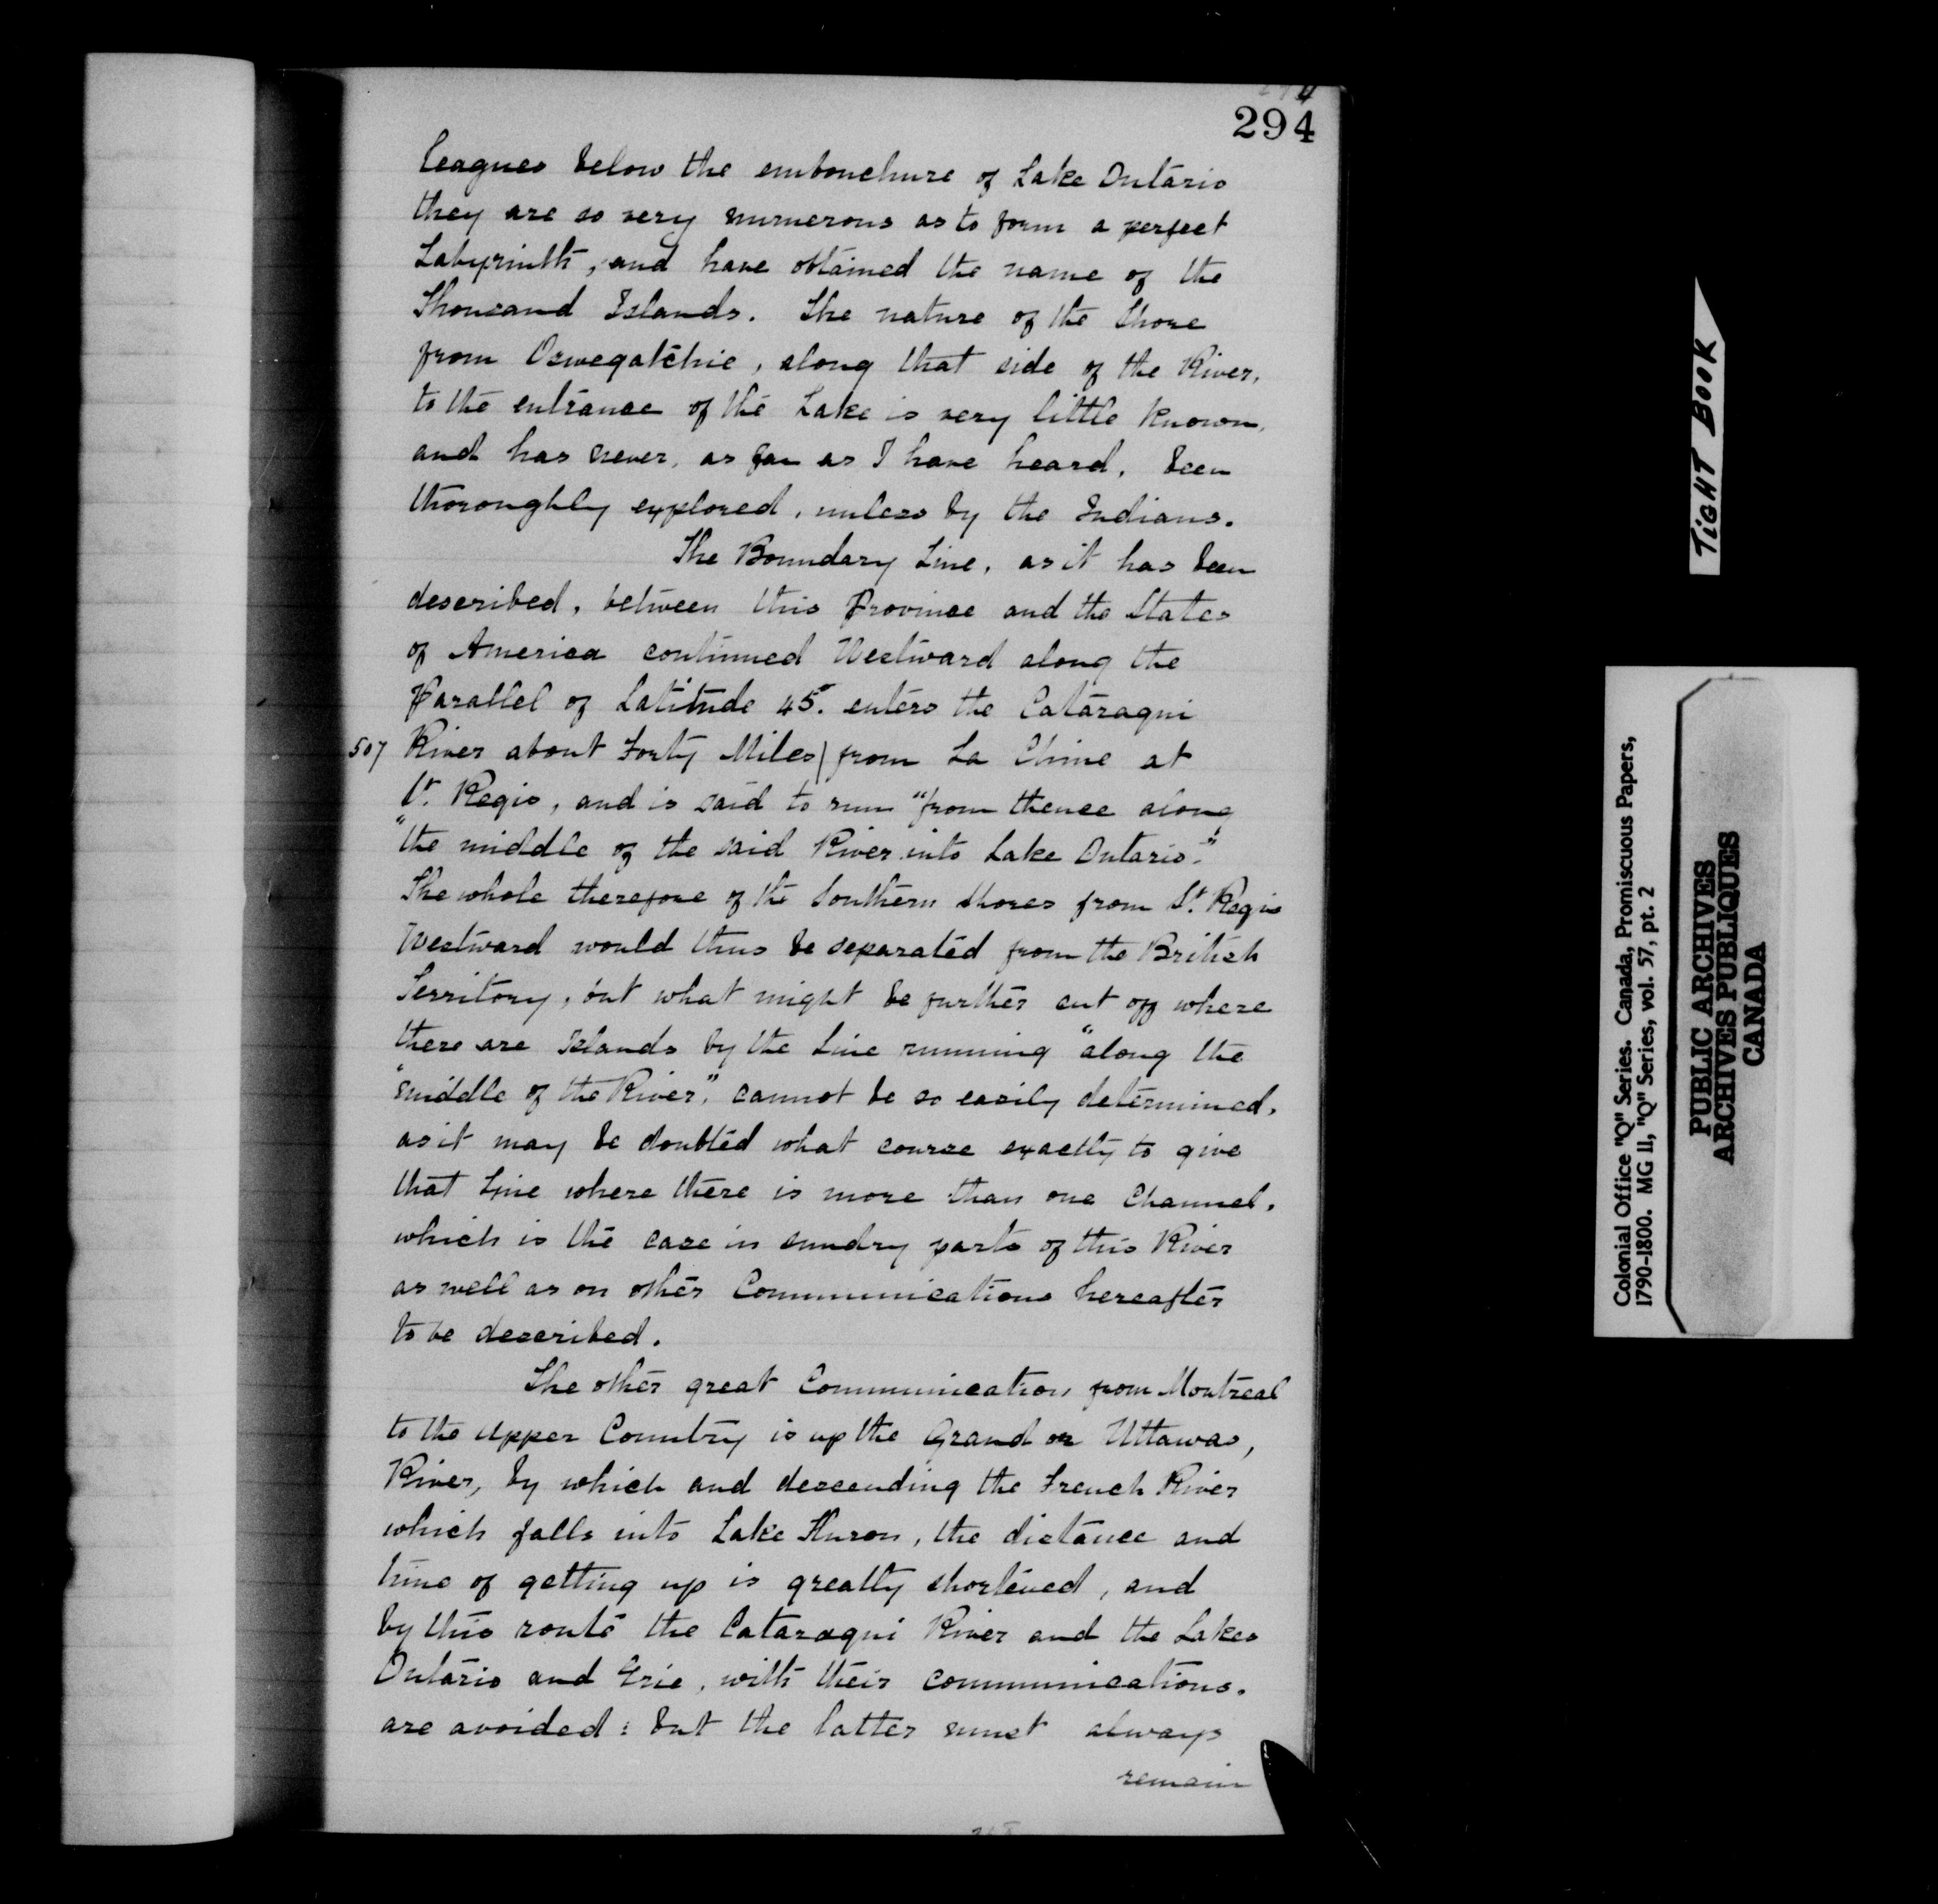 294
leagues below the embouchure of Lake Ontario
they are so very numerous as to form a perfect
Labyrinth, and have obtained the name of the
Thousand Islands. The nature of the Shore
from Oswegatchie, along that side of the River,
to the entrance of the Lake is very little known,
and has never, as far as I have heard, been
thoroughly explored, unless by the Indians.
The Boundary Line, as it has been
described, between this Province and the States
of America continued Westward along the
Parallel of Latitude 45°. enters the Cataraqui
507 River about Forty Miles) from La Chine at
St. Regis, and is said to run "from thence along
"the middle of the said River into Lake Ontario."
The whole therefore of the Southern Shores from St. Regis
Westward would thus be separated from the British
Territory, but what might be further cut off where
there are Islands by the Line running "along the
"middle of the River," cannot be so easily determined,
as it may be doubted what course exactly to give
that Line where there is more than one Channel,
which is the case in sundry parts of this River
as well as on other Communications hereafter
to be described.
The other great Communication from Montreal
to the Upper Country is up the Grand or Uttawas,
River, by which and descending the French River
which falls into Lake Huron, the distance and
time of getting up is greatly shortened, and
by this route the Cataraqui River and the Lakes
Ontario and Erie, with their communications.
are avoided: but the latter must always
remain
TIGHT BOOK
Colonial Office "Q" Series. Canada, Promiscuous Papers,
1790-1800. MG 11, "Q" Series, vol. 57, pt. 2
PUBLIC ARCHIVES
ARCHIVES PUBLIQUES
CANADA